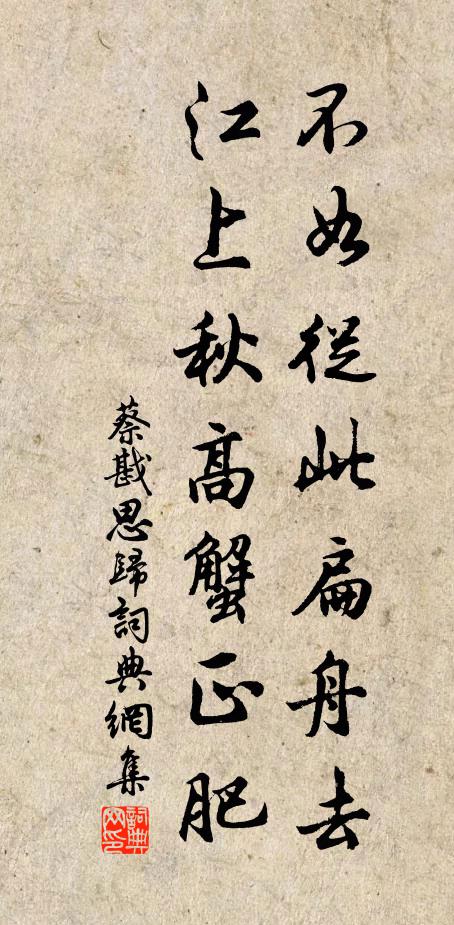 不如從此扁舟去
江上秋高蟹正肥
蔡戡思歸詞典網集
詞典網印